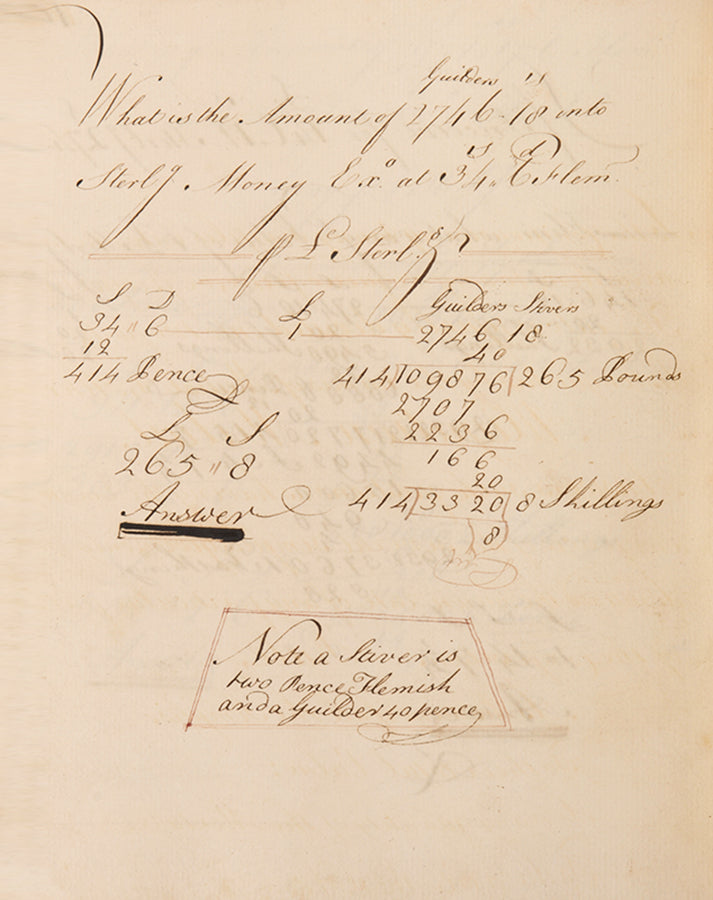 Guilders 's
What is the Amount of 2746 - 18 into
's d
Sterlg Money Exo. at 34 " 6 Flem.
P £ Sterl.g
S D £ Guilders Stivers
34 " 6 1 2746 18
12 40
414 Pence 414) 109876 ( 265 Pounds
2707
£ S 2236
265 " 8 166
20
Answer 414) 3320 ( 8 Shillings
(8)
Note a Stiver is
two Pence Flemish
and a Guilder 40 pence